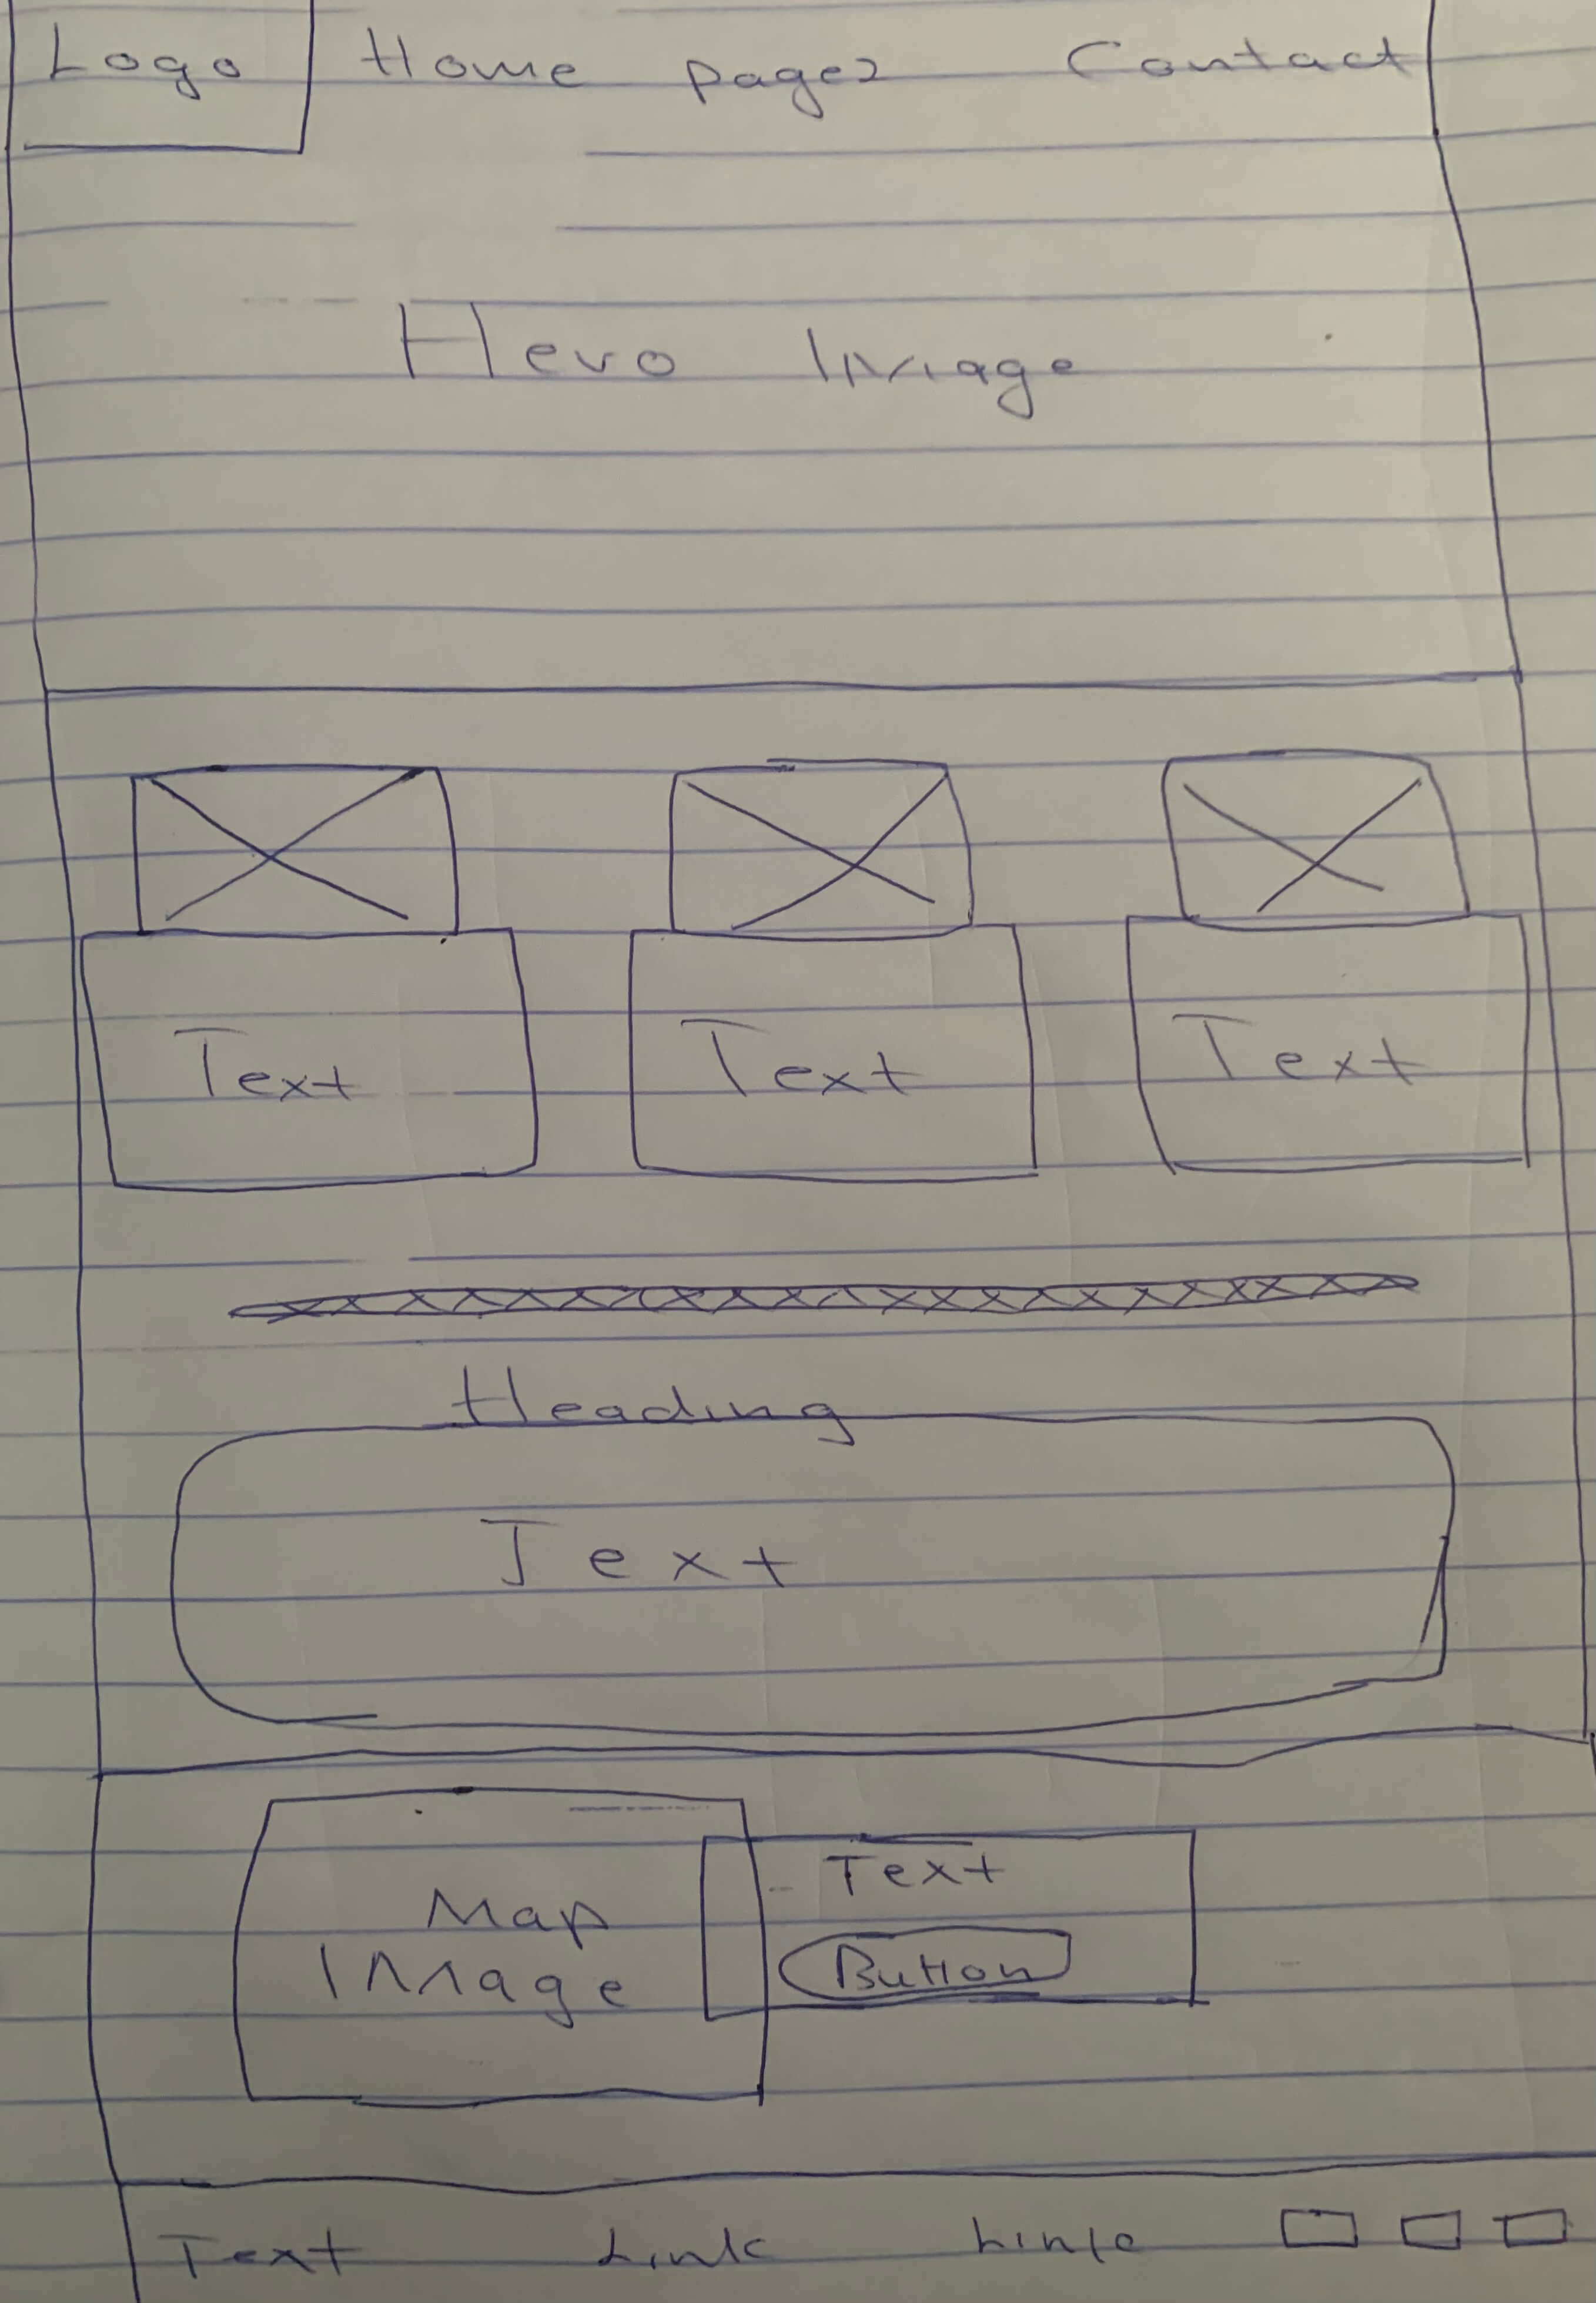 Logo Home page2 Contact
Hero Image
Text Text Text
Heading
Text
Map
Image
Text
Button
Text Link Link